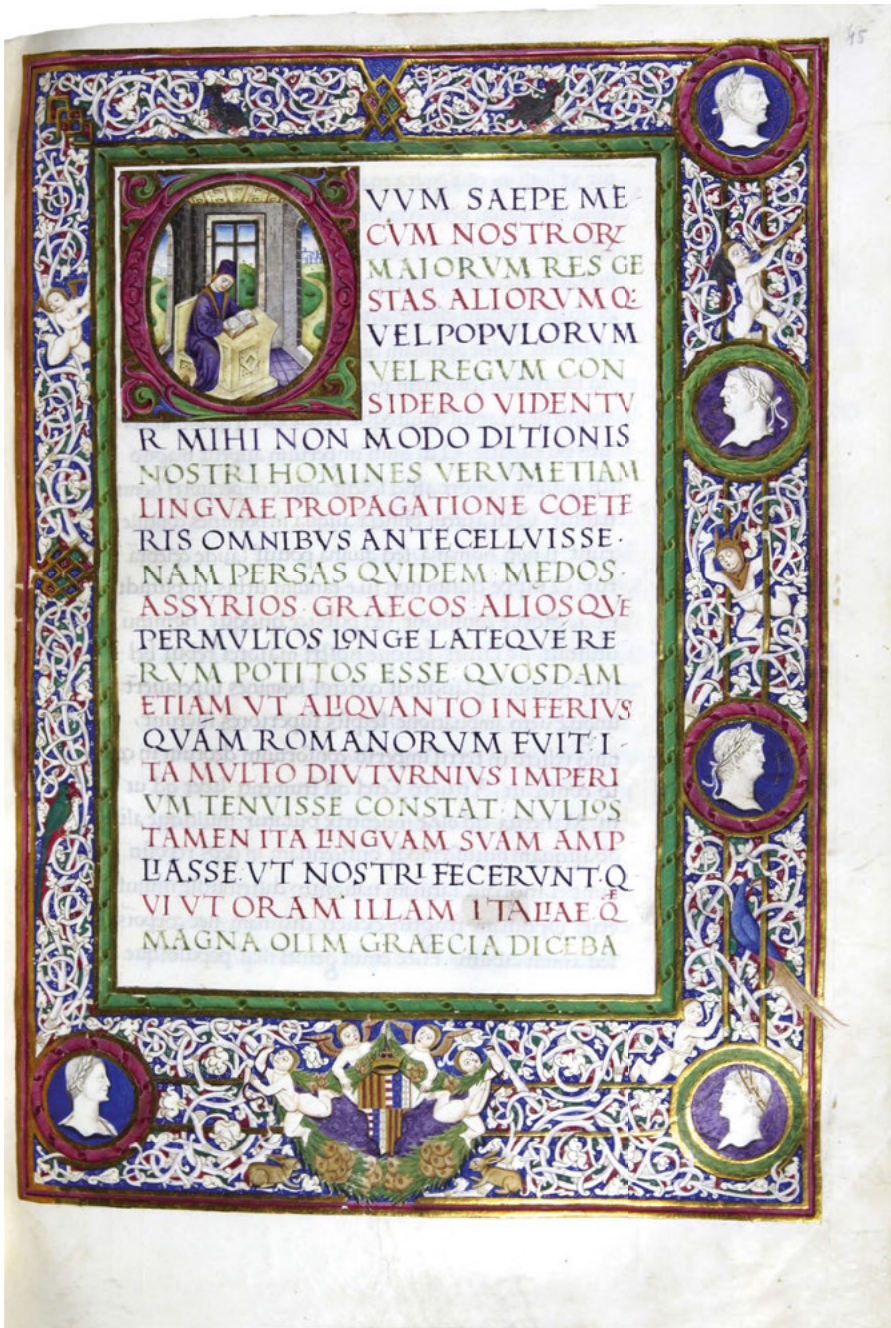 45
VVM SAEPE ME
CVM NOSTRORꝜ
MAIORVM RES GE
STAS ALIORVM Q:
VEL POPVLORVM
VEL REGVM CON
SIDERO VIDENTV
R MIHI NON MODO DITIONIS
NOSTRI HOMINES VERVMETIAM
LINGVAE PROPAGATIONE COETE
RIS OMNIBVS ANTECELLVISSE·
NAM PERSAS QVIDEM·MEDOS·
ASSYRIOS·GRAECOS·ALIOSQVE
PERMVLTOS LONGE LATEQVE RE
RVM POTITOS ESSE·QVOSDAM
ETIAM VT ALIQVANTO INFERIVS
QVAM ROMANORVM FVIT·I
TA MVLTO DIVTVRNIVS IMPERI
VM TENVISSE CONSTAT·NVLLOS
TAMEN ITA LINGVAM SVAM AMP
LIASSE·VT NOSTRI FECERVNT·Q
VI VT ORAM ILLAM ITALIAE·Q̃
MAGNA OLIM GRAECIA DICEBA